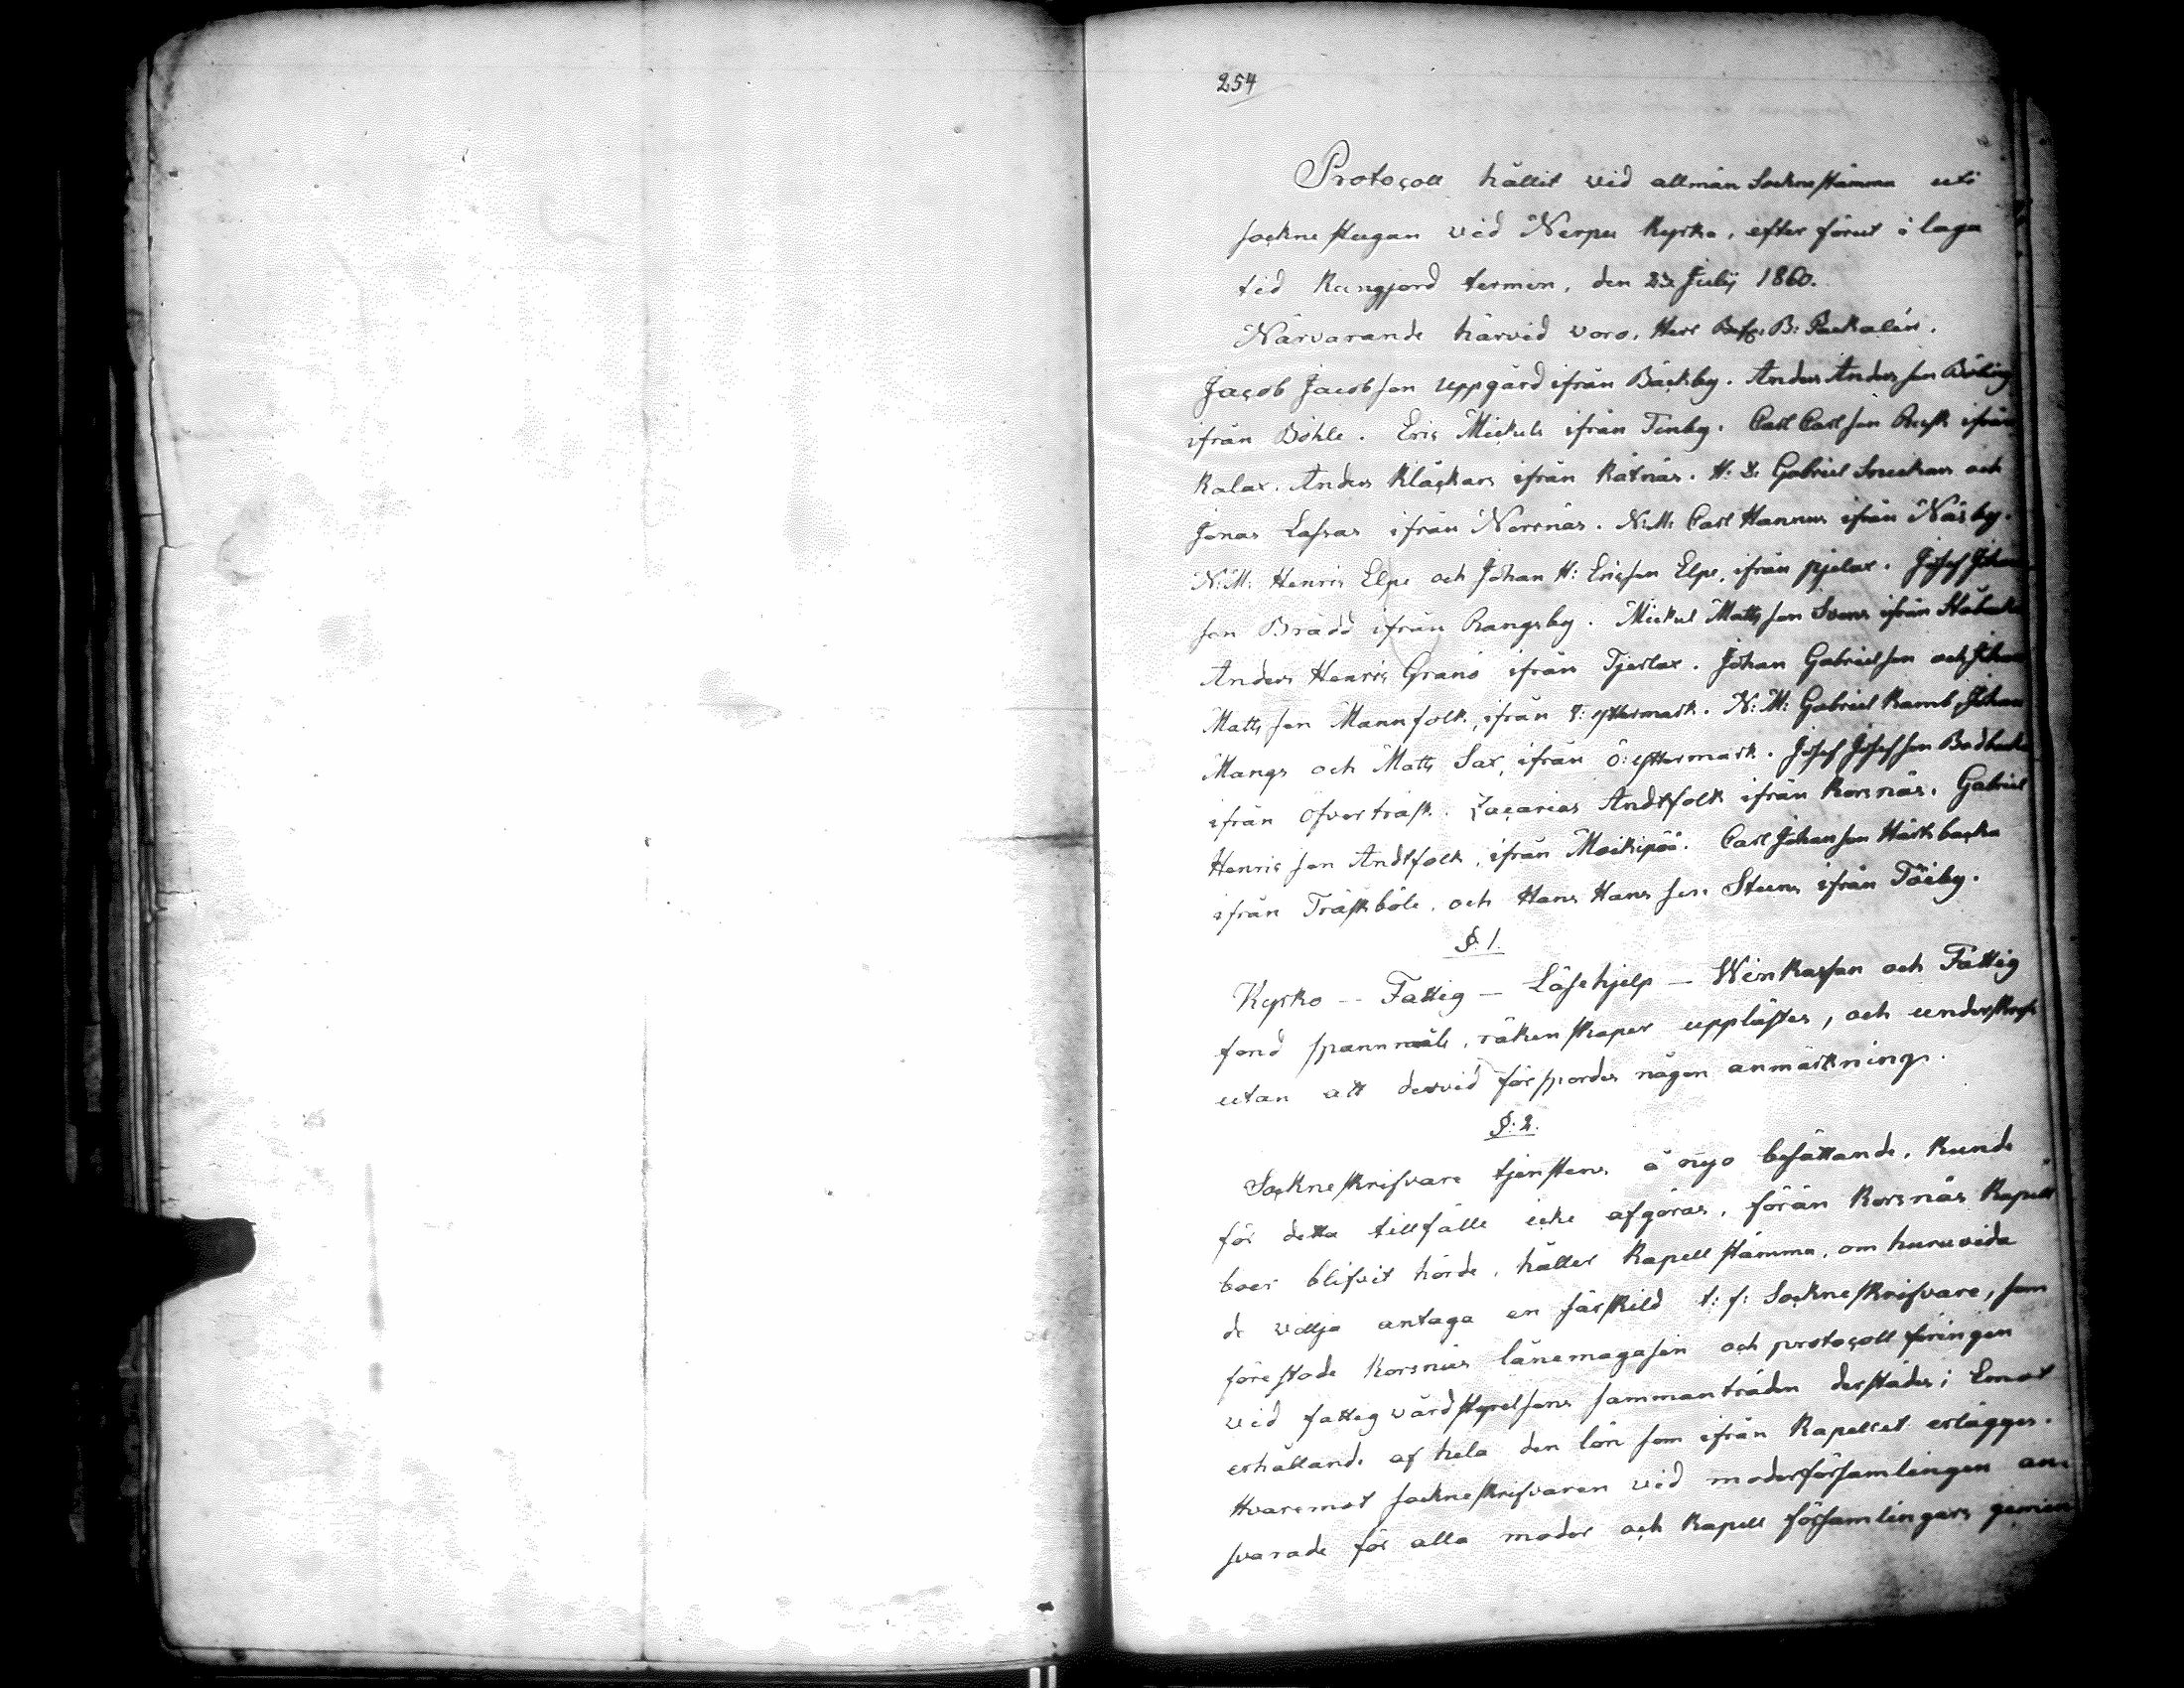 254
Protocoll hållit vid allmän Sockne stämma uti
sockne stugan vid Nerpes Kyrka, efter förut i laga
tid kungjord termin, den July 1860.
Närvarande härvid voro, Herr B:
Jacob Jacobsson Uppgård ifrån Bäckby. Anders Andersson
ifrån Böhle. Eric Mickels ifrån Finby. Carl Carlsson Rusk ifrån
Kalax. Anders Kläckars ifrån Kåtnäs. H: Gabriel Snickars och
Jonas Lassas ifrån Norrnäs. N:M: Carl Hannus ifrån Näsby.
N:M: Henric Elpe och Johan H: Ericsson Elpe, ifrån pjelax. Josef Johan
son Brädd ifrån Rangsby. Mickel Mattsson Svens ifrån
Anders Henric Granö ifrån Tjerlax. Johan Gabrielsson och Johan
Mattsson Mannfolk, ifrån Y: yttermark. N:M: Gabriel Kamb, Johan
Mangs och Matts Sax, ifrån Ö: yttermark. Josef Josefsson
ifrån Öfverträsk. Zacarias Andtfolk ifrån Korsnäs. Gabriel
Henricsson Andtfolk, ifrån Moikipää. Carl Johansson Härtsbacka
ifrån Träskböle. och Hans Hansson Steens ifrån Töjby.
§. 1.
Kyrko - Fattig - Läsehjelp - Winkassan och Fattig
fond spannmåls, räkenskaper upplästes, och underskrefs
utan att dervid förspordes någon anmärkning.
§. 2.
Sockneskrifvare tjenstens å nyo besättande, kunde
för detta tillfälle icke afgöras, förän Korsnäs Kapell
boer blifvit hörde, håller Kapell stämma, om huruvida
de vilja antaga en särskild t: f: Sockneskrifvare, som
förestode Korsnäs lånemagasin och protocoll föringen
vid fattigvårdstyrelsens sammanträden derstädes; Emot
erhållande af hela den lön som ifrån Kapellet erlägges.
Hvaremot sockneskrifvaren vid moderförsamlingen an-
svarade för alla moder och Kapell församlingars gemen